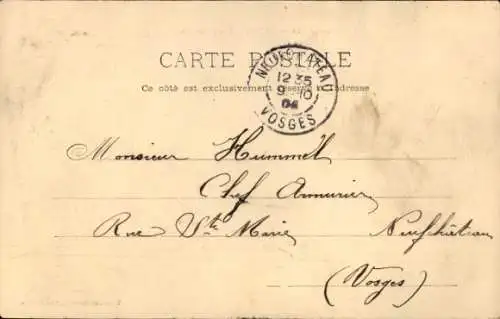 CARTE POSTALE
Ce côté est exclusivement réservé à l'adresse
NEUFCHATEAU
12 35
9 - 10
04
VOSGES
Monsieur Hummel
Chef Armurier
Rue Ste Marie Neufchâteau
(Vosges)